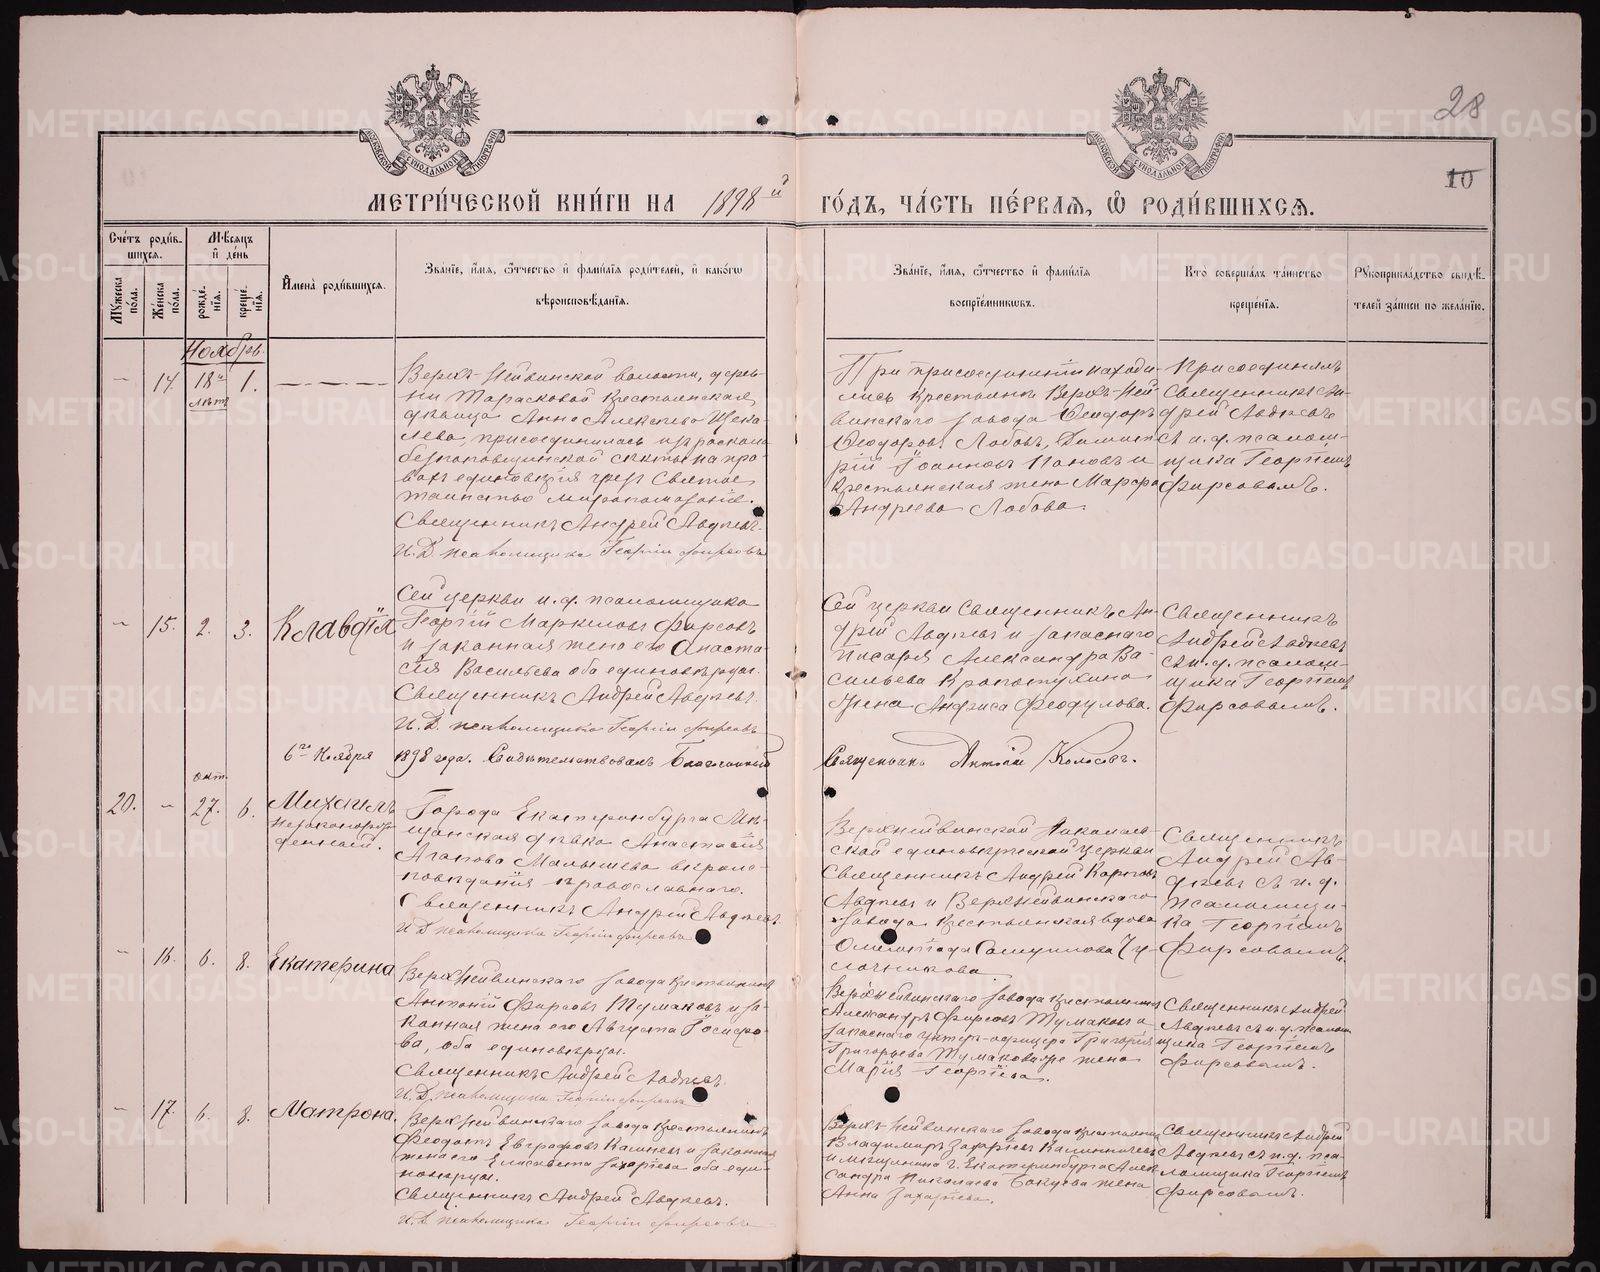 28
10
МЕТРИ́ЧЕСКОЙ КНИ́ГИ НА 1898й ГО́ДЪ, ЧА́СТЬ ПЕ́РВАЯ, Ѡ РОДИ́ВШИХСЯ.
Сче́тъ роди́в-
шихся.
Мѣ́сяцъ
и де́нь
Мꙋжеска
пола.
Же́нска
по́ла.
рожде́-
нїя.
креще́-
нїя.
Имена̀ роди́вшихся.
Зва́нїе, и́мя, ѻ́тчество и фами́лїя роди́телей, и како́гѡ
вѣроисповѣ́данїя.
Зва́нїе, и́мя, ѻ́тчество и фами́лїя
воспрїе́мникωвъ.
Кто̀ соверша́лъ та́инство
креще́нїя.
Рꙋкоприкла́дство свидѣ́-
телей за́писи по жела́нїю.
Ноябрь.
—
14
18и
лѣтъ
1.
Верхъ-Нейвинской волости, дерев-
ни Тарасковой крестьянская
дѣвица Анна Алексѣева Щека-
лева, присоединилась изъ раскола
безпоповщинской секты на пра-
вахъ единовѣрія чрезъ Святое
таинство миропомазанія.
Священникъ Андрей Авдѣевъ.
И. Д. псаломщика Георгій Фирсовъ
При присоединеніи находи-
лись крестьяне Верхъ-Ней-
винскаго завода Ѳеодоръ
Ѳеодоровъ Лобовъ, Димит-
рій Іоанновъ Пановъ и
крестьянская жена Марѳа
Андреева Лобова.
Присоединялъ
Священникъ Ан-
дрей Авдѣевъ
съ и. д. псалом-
щика Георгіемъ
Фирсовымъ.
—
15.
2.
3.
Клавдія
Сей церкви и. д. псаломщика
Георгій Маркеловъ Фирсовъ
и законная жена его Анаста-
сія Васильева оба единовѣрцы.
Священникъ Андрей Авдѣевъ.
И. Д. псаломщика Георгій Фирсовъ
Сей церкви Священникъ Ан-
дрей Авдѣевъ и запаснаго
писаря Александра Ва-
сильева
жена Анфиса Феодулова.
Священникъ
Андрей Авдѣевъ
съ и. д. псалом-
щика Георгіемъ
Фирсовымъ.
6го Ноября 1898 года. Свидѣтельствовалъ Благочинный Священникъ Антоній Колосовъ.
20.
—
окт.
27.
6.
Михаилъ
незаконорож-
денный.
Города Екатеринбурга Мѣ-
щанская дѣвка Анастасія
Агапова Малышева вѣроис-
повѣданія православнаго.
Священникъ Андрей Авдѣевъ.
И. Д. псаломщика Георгій Фирсовъ
Верхнейвинской Николь-
ской единовѣрческой церкви
Священникъ Андрей Карповъ
Авдѣевъ и Верхнейвинскаго
завода крестьянская вдова
Олимпіада Самуилова
Священникъ
Андрей Ав-
дѣевъ съ и. д.
псаломщи-
ка Георгіемъ
Фирсовымъ.
—
16.
6.
8.
Екатерина
Верхнейвинскаго завода крестьянинъ
Антоній Фирсовъ Тумаковъ и за-
конная жена его Августа Іосифо-
ва, оба единовѣрцы.
Священникъ Андрей Авдѣевъ.
И. Д. псаломщика Георгій Фирсовъ
Верхнейвинскаго завода крестьянинъ
Александръ Фирсовъ Тумаковъ и
запаснаго унтеръ-офицера Григорія
Григорьева Тумакова же жена
Марія Георгіева.
Священникъ Андрей
Авдѣевъ съ и. д. псалом-
щика Георгіемъ
Фирсовымъ.
—
17.
6.
8.
Матрона.
Верхъ-Нейвинскаго завода крестьянинъ
Феодотъ Евграфовъ и законная
жена его Елисавета Захаріева оба еди-
новѣрцы.
Священникъ Андрей Авдѣевъ.
И. Д. псаломщика Георгій Фирсовъ
Верхъ-Нейвинскаго завода крестьянинъ
Владимиръ Захаріевъ Калиничевъ
и мѣщанина г. Екатеринбурга Алек-
сандра Николаева жена
Анна Захаріева.
Священникъ Андрей
Авдѣевъ съ и. д. пса-
ломщика Георгіемъ
Фирсовымъ.